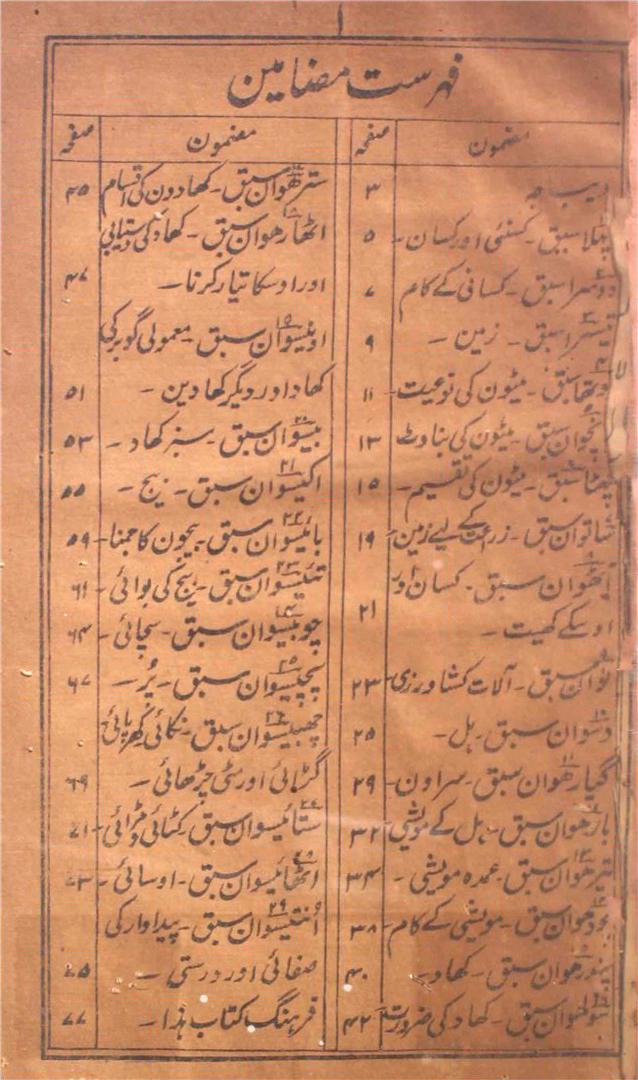 ۱
فہرست مضامین
مضمون صفحہ
دیباچہ ۳
پہلا سبق - کسنئی اور کسان - ۵
دوسرا سبق - کسانی کے کام ۷
تیسرا سبق - زمین - ۹
چوتھا سبق - مٹیون کی نوعیت - ۱۱
پانچوان سبق - مٹیون کی بناوٹ ۱۳
چھٹا سبق - مٹیون کی تقسیم - ۱۵
ساتوان سبق - زراعت کے لیے زمین ۱۹
آٹھوان سبق - کسان اور
اوسکے کھیت - ۲۱
نوان سبق - آلات کشاورزی ۲۳
دسوان سبق - ہل - ۲۵
گیارھوان سبق - سراون - ۲۹
بارھوان سبق - ہل کے مویشی ۳۲
تیرھوان سبق - عمدہ مویشی - ۳۴
چودھوان سبق - مویشی کے کام ۳۸
پندرھوان سبق - کھاد - ۴۰
سولھوان سبق - کھاد کی ضرورت ۴۲
مضمون صفحہ
سترھوان سبق - کھادون کی اقسام ۴۵
اٹھارھوان سبق - کھاد کی دستیابی
اور اوسکا تیار کرنا - ۴۷
اونیسوان سبق - معمولی گوبر کی
کھاد اور دیگر کھادین - ۵۱
بیسوان سبق - سبز کھاد - ۵۳
اکیسوان سبق - بیج - ۵۵
بائیسوان سبق - بیجون کا جمنا - ۵۹
تئیسوان سبق - بیج کی بوائی - ۶۱
چوبیسوان سبق - سچائی - ۶۴
پچیسوان سبق - پُر - ۶۷
چھبیسوان سبق - نکائی کھرپائی
گڑائی اور مٹی چڑھائی - ۶۹
ستائیسوان سبق - کٹائی مڑائی - ۷۱
اٹھائیسوان سبق - اوسائی - ۷۳
اُنتیسوان سبق - پیداوار کی
صفائی اور درستی - ۷۵
فرہنگ کتاب ہذا - ۷۷